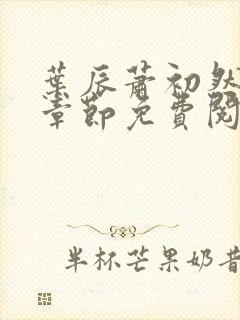 葉辰蕭初然
章節免費閱
半杯芒果奶昔